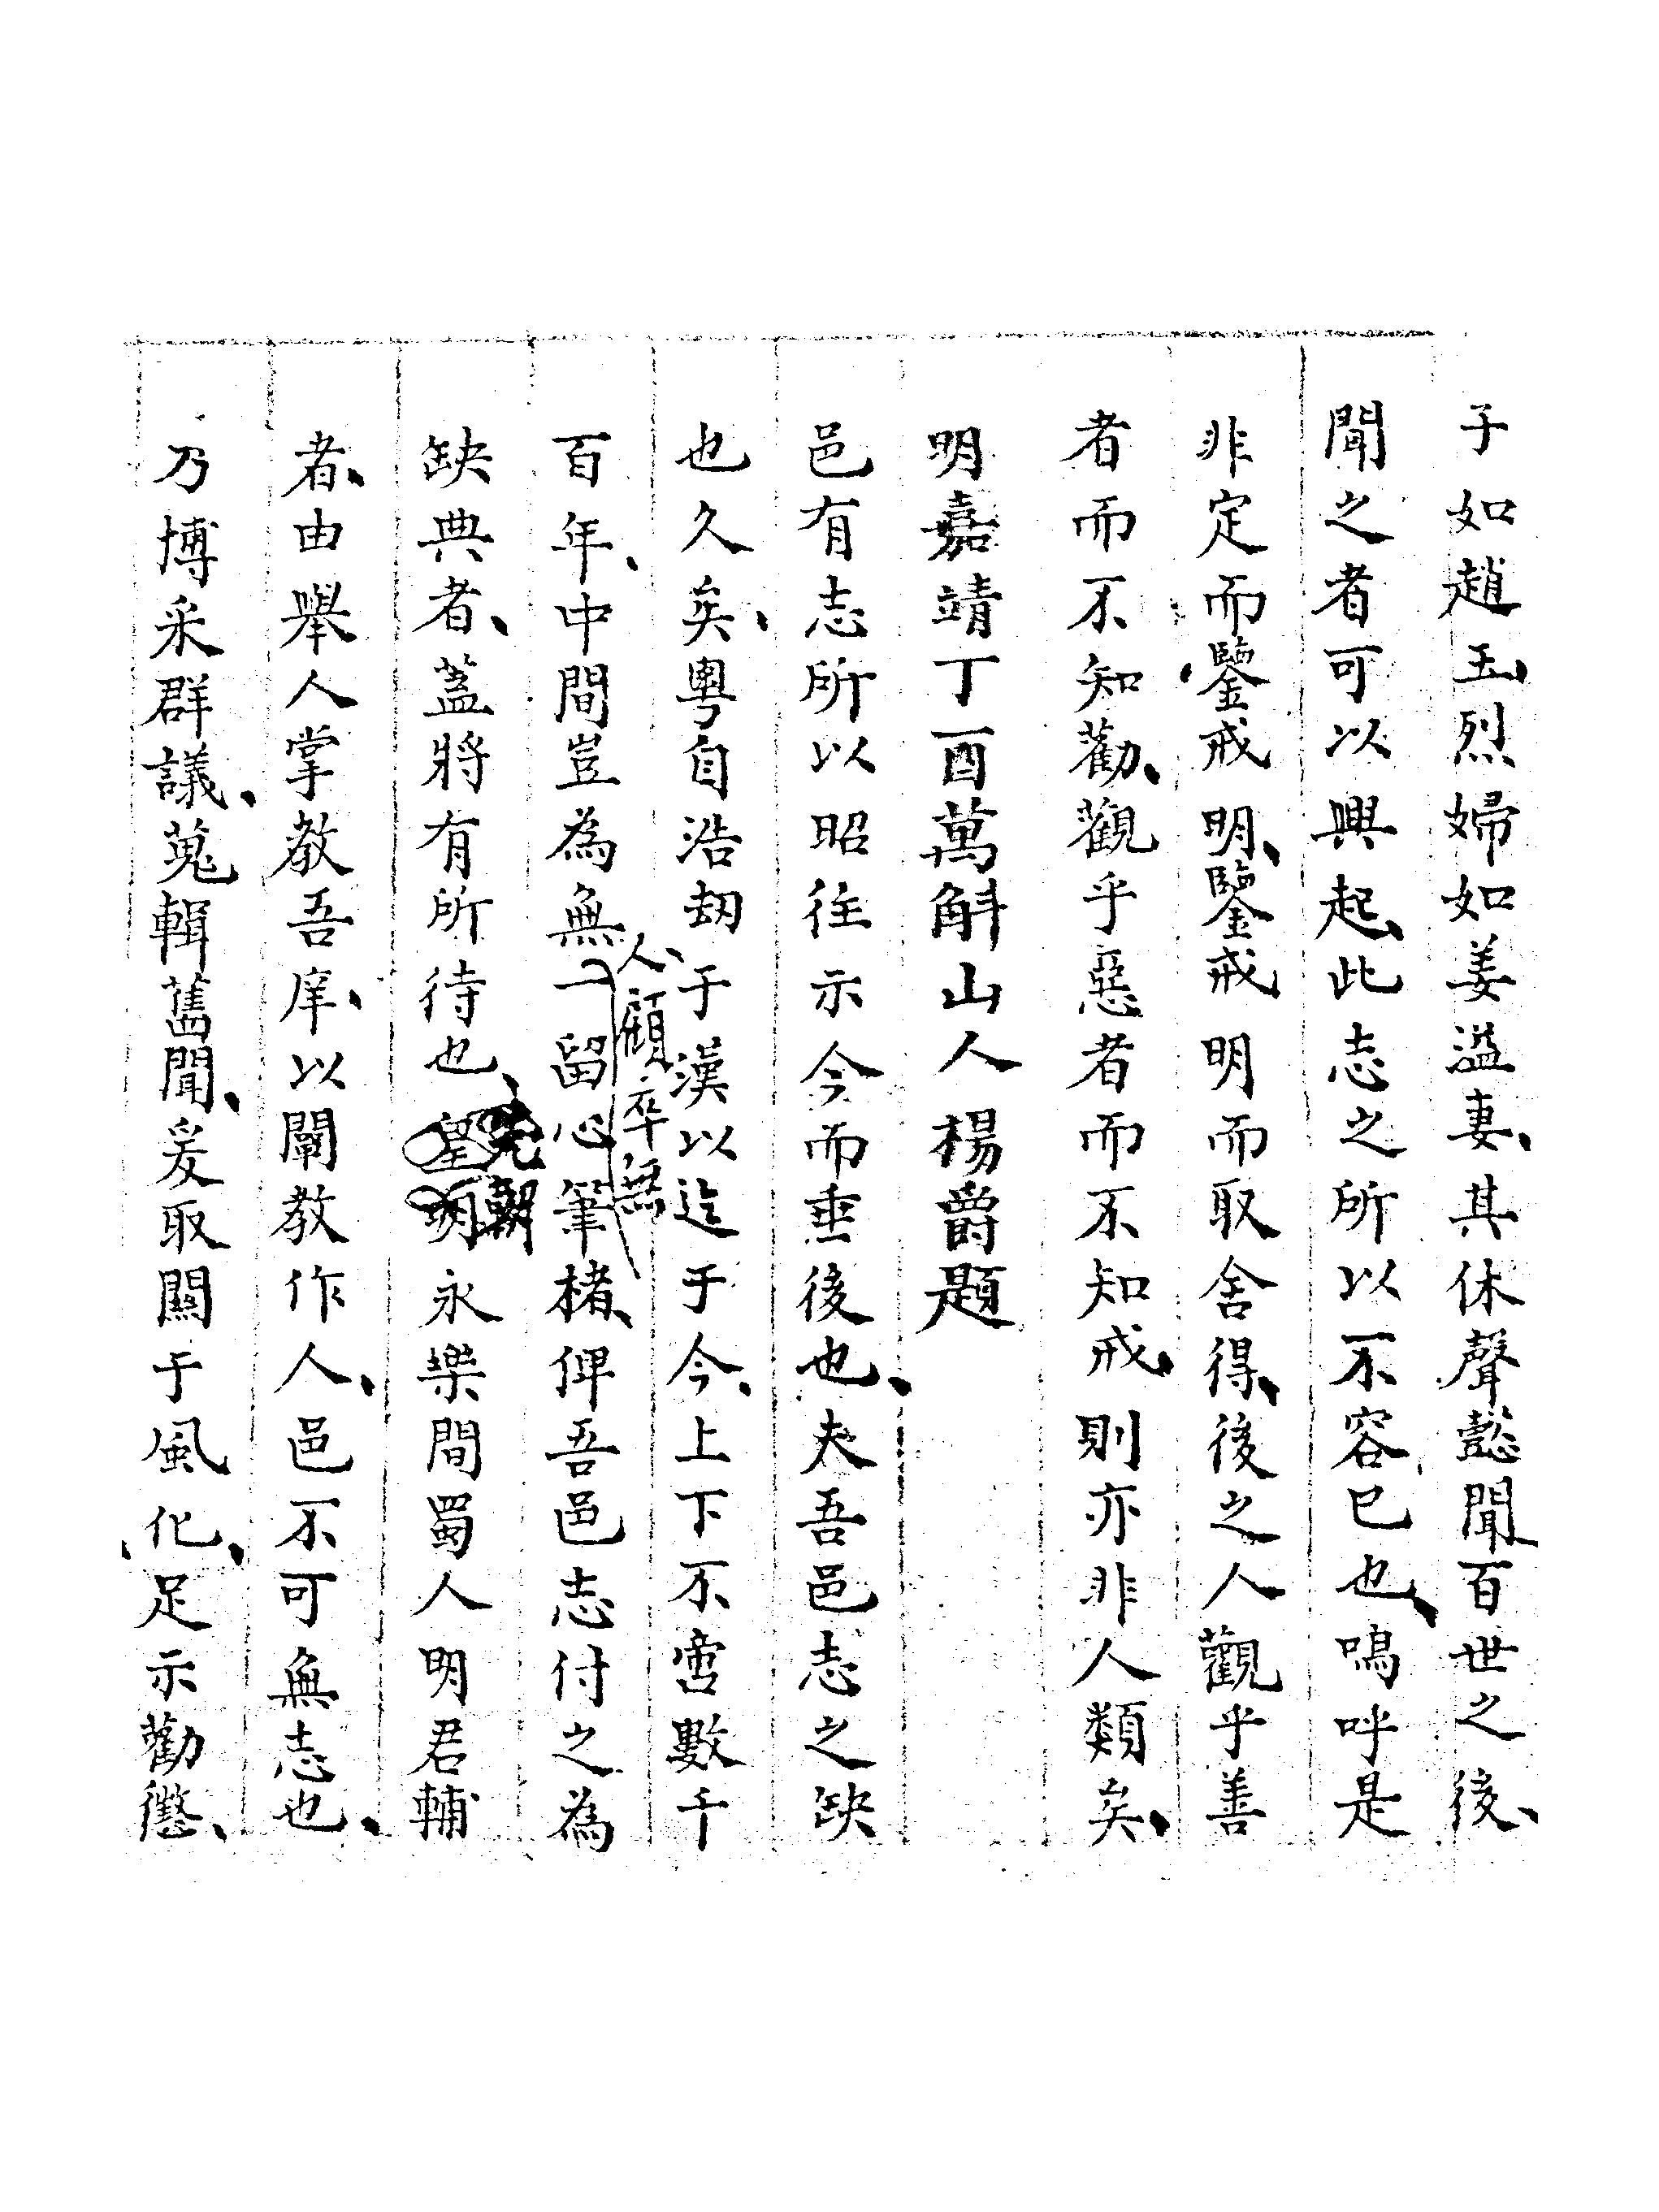 子如趙玉、烈婦如姜溢妻、其休聲懿聞百世之後、
聞之者可以興起、此志之所以不容已也、嗚呼是
非定而鑒戒明、鑒戒明而取舍得、後之人觀乎善
者而不知勸、觀乎惡者而不知戒、則亦非人類矣、
明嘉靖丁酉萬斛山人楊爵題
邑有志所以昭往示今而垂後也、夫吾邑志之缺
也久矣、粵自浩劫于漢以迄于今、上下不啻數千
人、顧卒無
百年、中間豈為無一留心筆楮、俾吾邑志付之為
缺典者、蓋將有所待也、皇明永樂間蜀人明君輔
先朝
者、由舉人掌教吾庠、以闡教作人、邑不可無志也、
乃博采群議、蒐輯舊聞、爰取關于風化、足示勸懲、